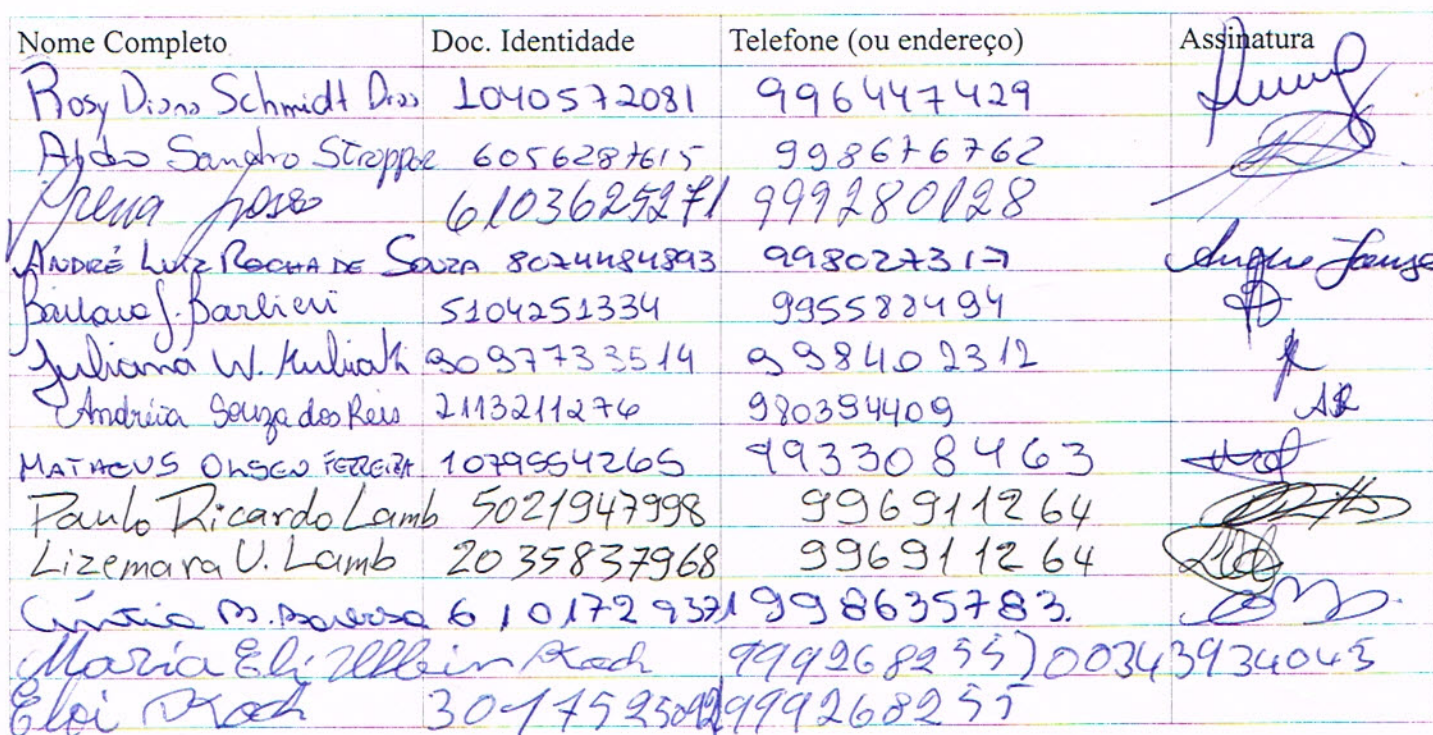 Nome Completo Doc. Identidade Telefone (ou endereço) Assinatura
Rosy Diana Schmidt Dias 1040572081 996447429
Sandro 6056287615 998676762
6103625271 999280128
ANDRÉ LUIZ ROCHA DE SOUZA 8074484893 998027317
Barbieri 5104251334 995588494
Juliana W. 9097733514 998402312
Andréia Souza dos Reis 2113211276 980394409 AR
MATHEUS OLSEN FERREIRA 1079554265 993308463
Paulo Ricardo Lamb 5021947998 996911264
Lizemara U. Lamb 2035837968 996911264
Cíntia 6101729371 998635783.
Maria 999268255) 00343934045
Eloi Koch 999268255